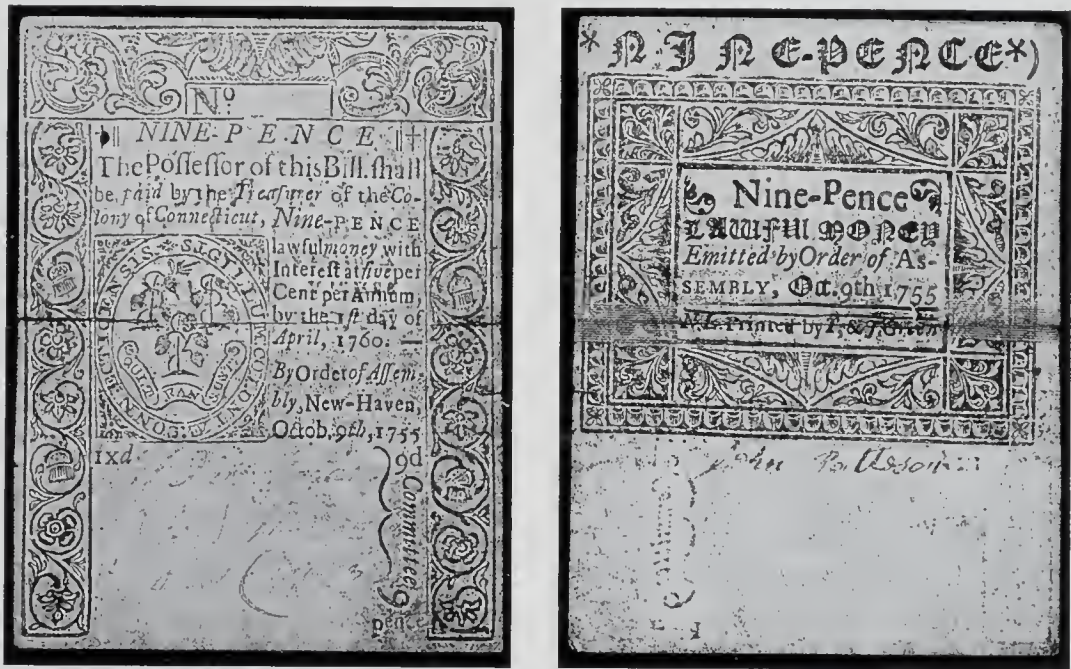 No
NINE-PENCE
The Poſſeſſor of this Bill ſhall
be paid by the Treaſurer of the Co-
lony of Connecticut, Nine-PENCE
lawful money with
Intereſt at five per
Cent per Annum,
by the 1ſt day of
April, 1760. —
By Order of Aſſem-
bly, New-Haven,
Octob. 9th, 1755
SIGILLUM COLONIÆ CONNECTICENSIS
ixd
9d
Committee
9
pence
*NINE-PENCE*)
Nine-Pence
LAWFUL MONEY
Emitted by Order of As-
SEMBLY, Oct. 9th 1755
N. L. Printed by T. & J. Green
John